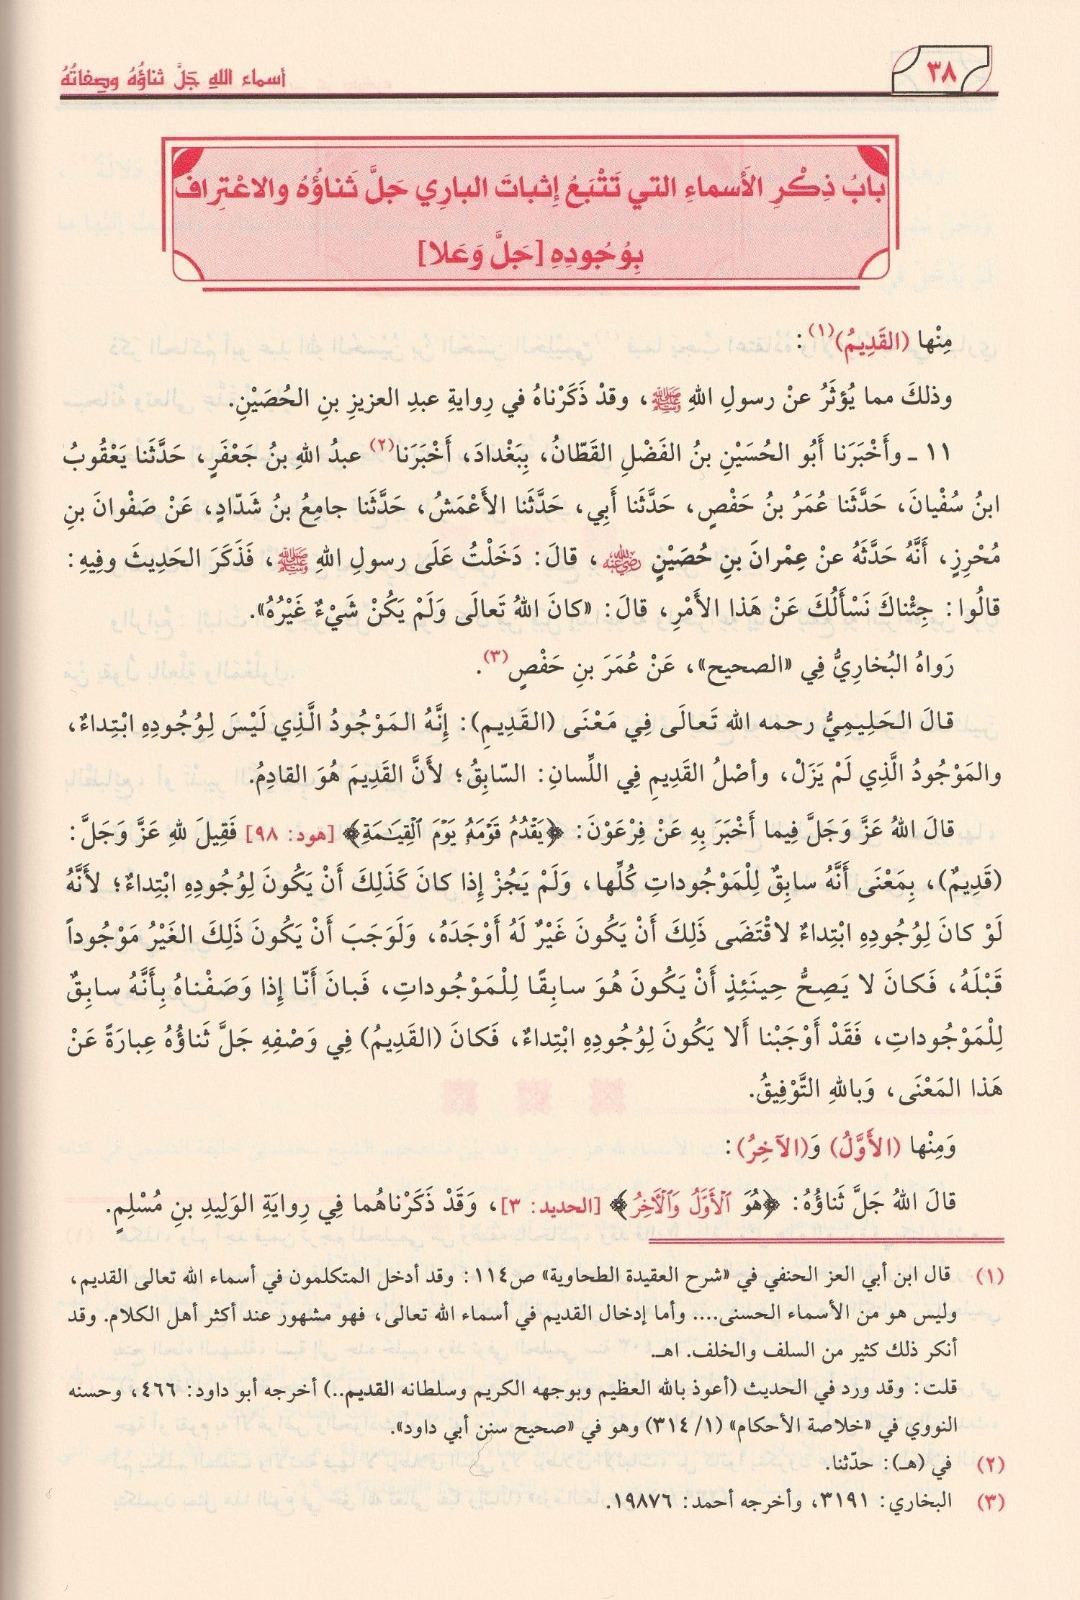 ٣٨
أسماء اللهِ جَلَّ ثناؤُهُ وصِفاتُهُ
بابُ ذِكْرِ الأَسماءِ التي تَتْبَعُ إثباتَ الباري جَلَّ ثَناؤُهُ والاعْتِراف
بِوُجُودِهِ [جَلَّ وَعَلا]
مِنْها (القَدِيمُ)(١):
وذلكَ مما يُؤثَرُ عنْ رسولِ اللهِ ﷺ، وقدْ ذَكَرْناهُ في رِوايةِ عبدِ العزيزِ بنِ الحُصَيْنِ.
١١ ـ وأَخْبَرَنا أَبُو الحُسَيْنِ بنُ الفَضْلِ القَطّانُ، بِبَغْدادَ، أَخْبَرَنا(٢) عبدُ اللهِ بنُ جَعْفَرٍ، حَدَّثَنا يَعْقُوبُ
ابنُ سُفْيانَ، حَدَّثَنا عُمَرُ بنُ حَفْصٍ، حَدَّثَنا أَبي، حَدَّثَنا الأَعْمَشُ، حَدَّثَنا جامِعُ بنُ شَدّادٍ، عَنْ صَفْوانَ بنِ
مُحْرِزٍ، أَنَّهُ حَدَّثَهُ عنْ عِمْرانَ بنِ حُصَيْنٍ رضي الله عنه، قالَ: دَخَلْتُ عَلَى رسولِ اللهِ ﷺ، فَذَكَرَ الحَدِيثَ وفِيهِ:
قالُوا: جِئْناكَ نَسْأَلُكَ عَنْ هَذا الأَمْرِ، قالَ: «كانَ اللهُ تَعالَى وَلَمْ يَكُنْ شَيْءٌ غَيْرُهُ».
رَواهُ البُخاريُّ فِي «الصحيح»، عَنْ عُمَرَ بنِ حَفْصٍ(٣).
قالَ الحَلِيمِيُّ رحمه الله تَعالَى فِي مَعْنَى (القَدِيمِ): إِنَّهُ المَوْجُودُ الَّذِي لَيْسَ لِوُجُودِهِ ابْتِداءٌ،
والمَوْجُودُ الَّذِي لَمْ يَزَلْ، وأَصْلُ القَدِيمِ فِي اللِّسانِ: السّابِقُ؛ لأَنَّ القَدِيمَ هُوَ القادِمُ.
قالَ اللهُ عَزَّ وَجَلَّ فِيما أَخْبَرَ بِهِ عَنْ فِرْعَوْنَ: ﴿يَقْدُمُ قَوْمَهُۥ يَوْمَ ٱلْقِيَٰمَةِ﴾ [هود: ٩٨] فَقِيلَ للهِ عَزَّ وَجَلَّ:
(قَدِيمٌ)، بِمَعْنَى أَنَّهُ سابِقٌ لِلْمَوْجُوداتِ كُلِّها، وَلَمْ يَجُزْ إِذا كانَ كَذَلِكَ أَنْ يَكُونَ لِوُجُودِهِ ابْتِداءٌ؛ لأَنَّهُ
لَوْ كانَ لِوُجُودِهِ ابْتِداءٌ لاقْتَضَى ذَلِكَ أَنْ يَكُونَ غَيْرٌ لَهُ أَوْجَدَهُ، وَلَوَجَبَ أَنْ يَكُونَ ذَلِكَ الغَيْرُ مَوْجُوداً
قَبْلَهُ، فَكانَ لا يَصِحُّ حِينَئِذٍ أَنْ يَكُونَ هُوَ سابِقًا لِلْمَوْجُوداتِ، فَبانَ أَنّا إِذا وَصَفْناهُ بِأَنَّهُ سابِقٌ
لِلْمَوْجُوداتِ، فَقَدْ أَوْجَبْنا أَلا يَكُونَ لِوُجُودِهِ ابْتِداءٌ، فَكانَ (القَدِيمُ) فِي وَصْفِهِ جَلَّ ثَناؤُهُ عِبارَةً عَنْ
هَذا المَعْنَى، وَباللهِ التَّوْفِيقُ.
وَمِنْها (الأَوَّلُ) وَ(الآخِرُ):
قالَ اللهُ جَلَّ ثَناؤُهُ: ﴿هُوَ ٱلْأَوَّلُ وَٱلْآخِرُ﴾ [الحديد: ٣]، وَقَدْ ذَكَرْناهُما فِي رِوايَةِ الوَلِيدِ بنِ مُسْلِمٍ.
(١) قال ابن أبي العز الحنفي في «شرح العقيدة الطحاوية» ص١١٤: وقد أدخل المتكلمون في أسماء الله تعالى القديم،
وليس هو من الأسماء الحسنى.... وأما إدخال القديم في أسماء الله تعالى، فهو مشهور عند أكثر أهل الكلام. وقد
أنكر ذلك كثير من السلف والخلف. اهـ.
قلت: وقد ورد في الحديث (أعوذ بالله العظيم وبوجهه الكريم وسلطانه القديم..) أخرجه أبو داود: ٤٦٦، وحسنه
النووي في «خلاصة الأحكام» (١/ ٣١٤) وهو في «صحيح سنن أبي داود».
(٢) في (هـ): حدّثنا.
(٣) البخاري: ٣١٩١، وأخرجه أحمد: ١٩٨٧٦.